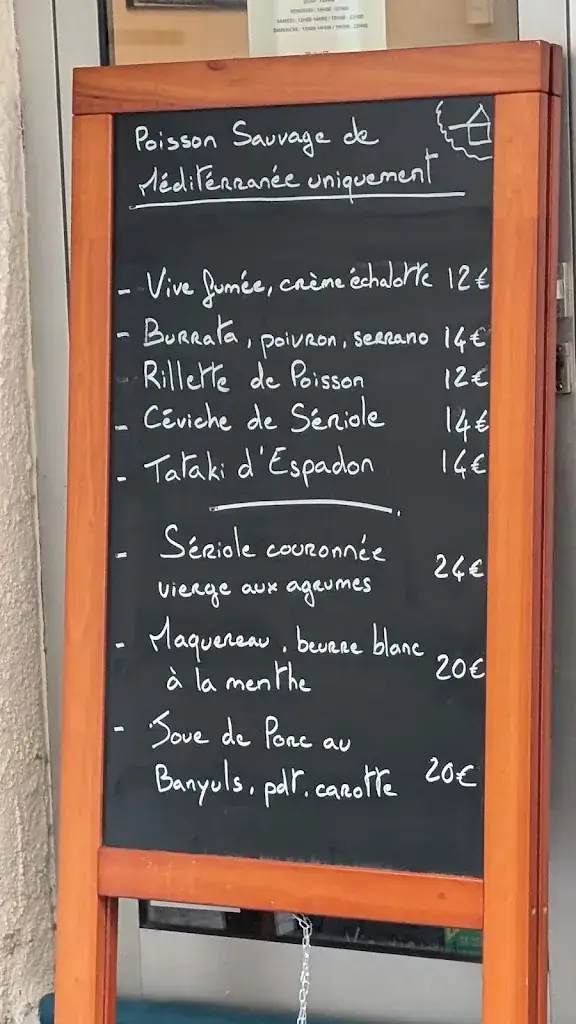 Poisson Sauvage de
Méditérranée uniquement
- Vive fumée, crème échalotte 12€
- Burrata, poivron, serrano 14€
- Rillette de Poisson 12€
- Céviche de Sériole 14€
- Tataki d'Espadon 14€
- Sériole couronnée
vierge aux agrumes 24€
- Maquereau, beurre blanc
à la menthe 20€
- Joue de Porc au
Banyuls, pdt, carotte 20€